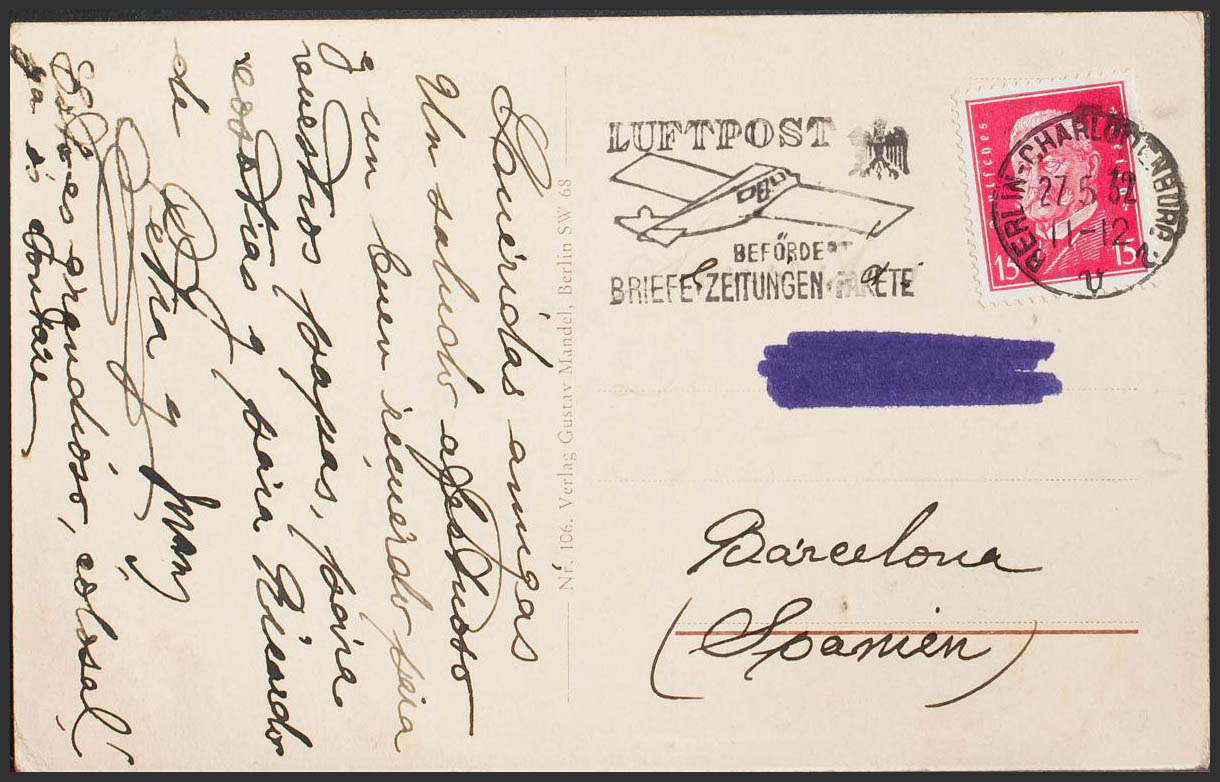 Queridas amigas
Un saludo afectuoso
y un buen recuerdo para
vuestros papas, para
vosotras y para Ricardo
de Petra y
Esto es grandioso, colosal,
ya os contare
Nr. 106. Verlag Gustav Mandel, Berlin SW 68
LUFTPOST
BEFÖRDERT
BRIEFE·ZEITUNGEN·PAKETE
BERLIN-CHARLOTTENBURG 2
27.5.32
11-12 V
15 15
Barcelona
(Spanien)